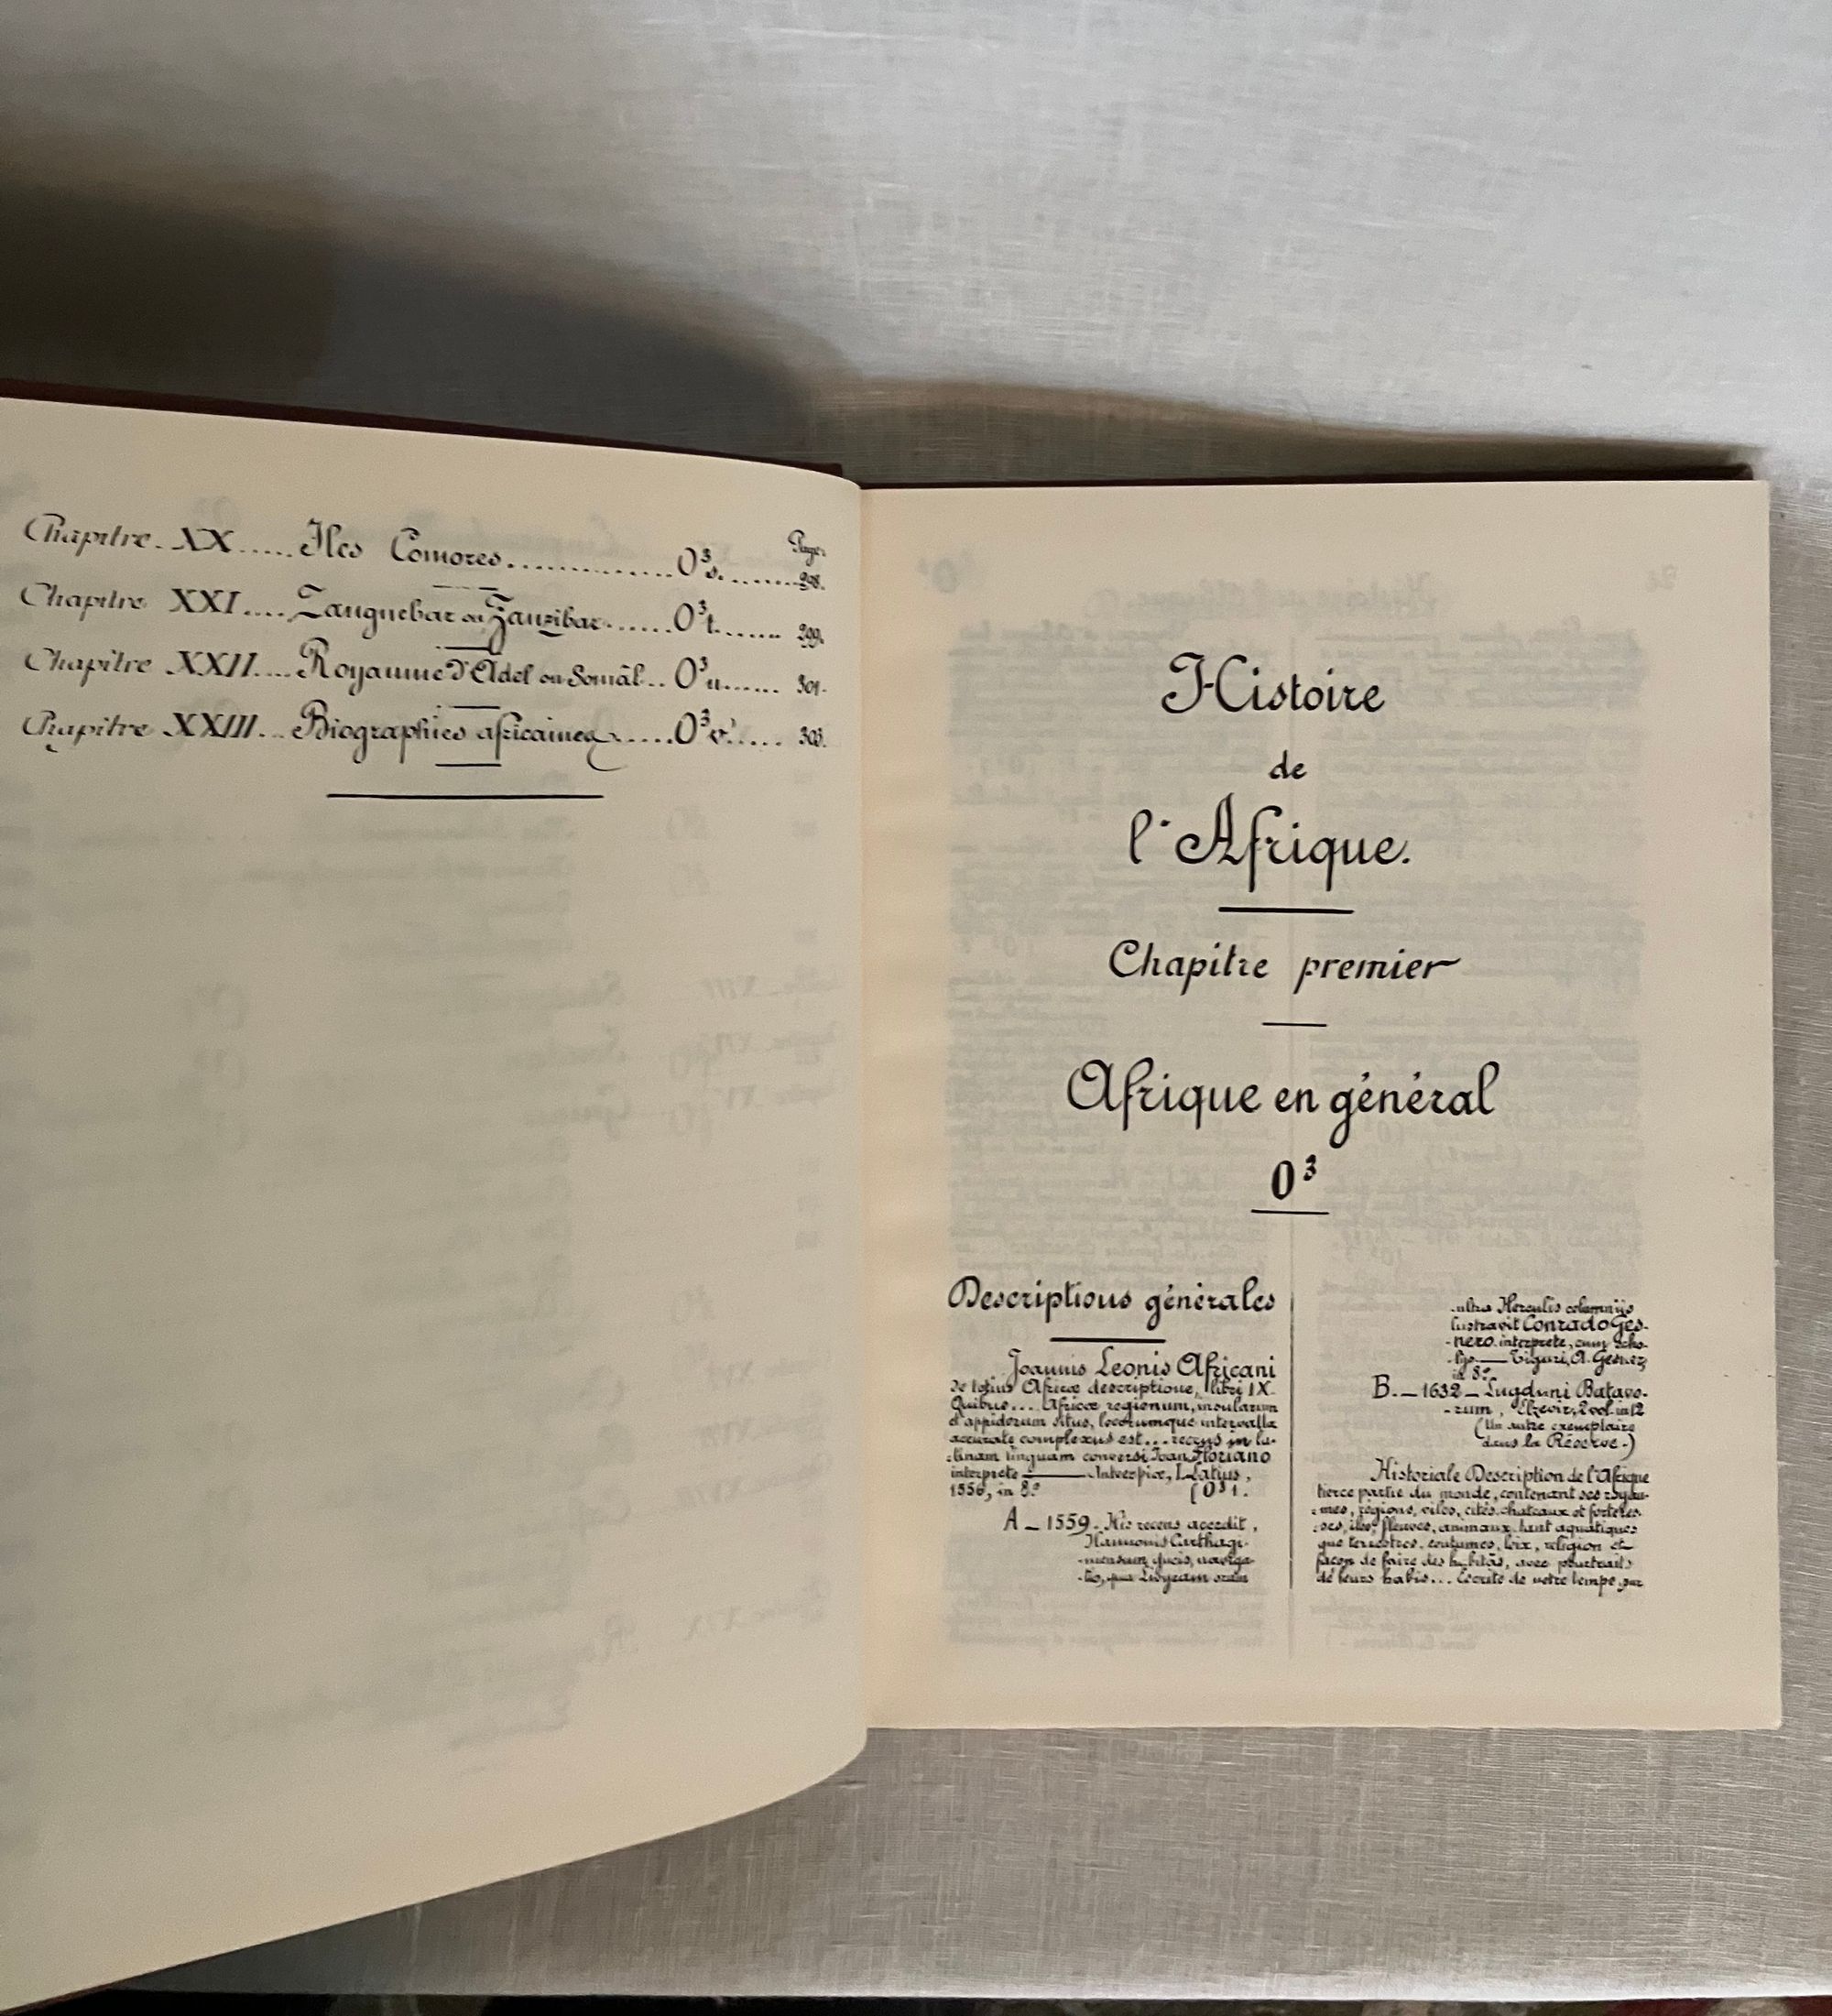 Page.
Chapitre. XX..... Iles Comores.............O³s........298.
Chapitre XXI.... Zanguebar ou Zanzibar......O³t....... 299.
Chapitre XXII.... Royaume d'Adel ou Somâl.. O³u...... 301.
Chapitre XXIII... Biographies africaines.....O³v..... 303.
Histoire
de
l'Afrique.
Chapitre premier
Afrique en général
O³
Descriptions générales
Joannis Leonis Africani
de totius Africæ descriptione, libri IX.
Quibus... Africæ regionum, insularum
et oppidorum situs, locorumque intervalla
accurate complexus est... recens in la-
-tinam linguam conversi Joan Floriano
interprete — Antverpiæ, J. Latius,
1556, in 8.º [O³1.
A — 1559. His recens accedit,
Hannonis Carthagi-
-niensium ducis, naviga-
-tio, qua Libycam oram
ultra Herculis columnas
lustravit Conrado Ges-
-nero interprete, cum scho-
-lijs — Tiguri, A. Gesner,
in 8.º
B. — 1632 — Lugduni Batavo-
-rum, Elzevir, 2 vol. in 12
(Un autre exemplaire
dans la Réserve.)
Historiale Description de l'Afrique
tierce partie du monde, contenant ses royau-
-mes, régions, viles, cités, chateaux et forteres-
-ses, iles, fleuves, animaux, tant aquatiques
que terrestres, coutumes, loix, religion et
façon de faire des habitãs, avec pourtraits
de leurs habis... Escrite de notre temps par